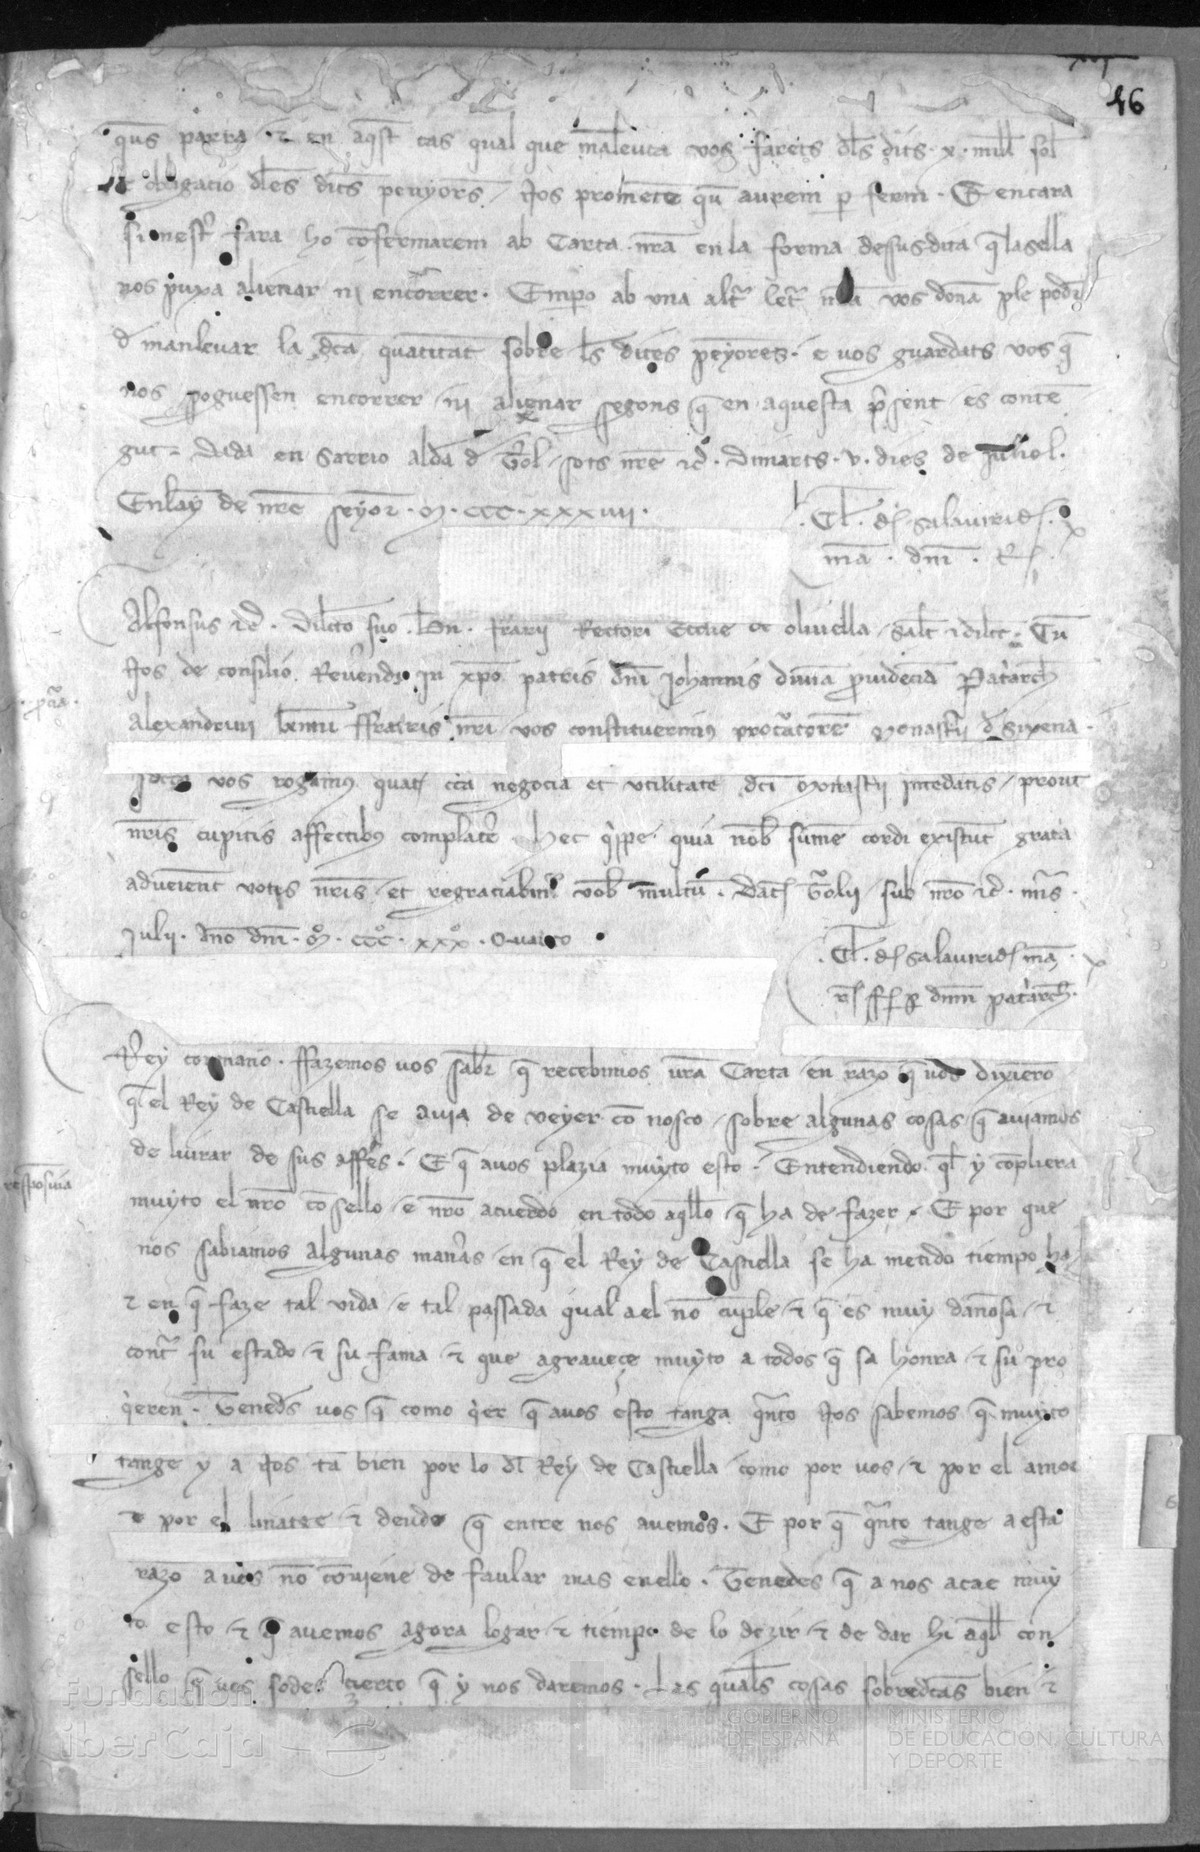 46
qu̅s partra · ⁊ en aq̅st cas qual que ma̅leuta vos farets dl̅s dits · x · mill sol
e obligatio dl̅es dits penyors / Nos promete̅ qu̅ aurem p̱ ferm · E encara
si mest̅ fara ho co̅fermarem ab Carta nr̅a en la forma dessusdita q̅ lasella
nos puxa alienar ni encorrer · Emp̱o ab vna alt̅ let̅ nr̅a vos dona̅ ple pod̅r
d̅ manleuar la dc̅a qua̅titat sobre ls̅ dites pe̅yores · e vos guardats vos q̅
nos poguessen encorrer ni alienar segons q̅ en aquesta p̅sent es conte̅
gut = Dada en Sarrio aldea d̅ T̅ol / sots nr̅e ⁊c̅ · Dimarts · v · dies de Juliol ·
En lay̅ de nr̅e seyor · M · CCC · xxxiiii ·
· Cl̅ · de salaurid̅ ·
ma̅ · dni̅ · R̅ ·
Alfonsus ⁊c̅ · Dilc̅to suo · Bn̅ · Frarii Rectori Ecclie̅ de oliuella / Salt̅ ⁊ dilc̅c̅ · Cu̅
Nos de consilio Reue̅ndi in xp̅o patris dni̅ Johannis diuina p̱uidencia Patriarch̅
Alexandrini kr̅mi ffratris nr̅i vos constituerimus procu̅atore̅ Monast̅ii d̅ Sixena ·
· p̱cia̅ ·
vos rogamus quat̅ cc̅a negocia et vtilitate̅ dc̅i Monast̅ii inte̅datis / prout
nr̅is cupitis affectibus compla̅e̅ · Hec q̱ippe quia nob̅ sume̅ cordi existu̅t grata
adueient votis nr̅is / et regraciabim̅ vob̅ multu̅ · Dat̅ T̅olii / sub nr̅o ⁊c̅ · nr̅is ·
Julii · Anno dni̅ · Mº · CCCº · xxxº · Quarto ·
· Cl̅ · de salaurid̅ ma̅ ·
R̅ ff̅ p̱ dnm̅ pat̅arch̅ ·
Rey cormano · ffazemos uos sab̅r q̅ recebimos vr̅a Carta en razo̅ q̅ uos dixiero̅
q̅ el Rey de Castiella se auia de veyer co̅ nosco / sobre algunas cosas q̅ auiamos
de liurar de sus affe̅s · E q̅ auos plazia muyto esto · Entendiendo ql̅ y co̅pliera
resposiua
muyto el nr̅o co̅sello / e nr̅o acuerdo en todo aq̅llo q̅ ha de fazer · E por que
nos sabiamos algunas man̅as en q̅ el Rey de Castiella se ha metido tiempo ha
⁊ en q̅ faze tal vida / e tal passada qual ael no̅ cu̅ple / ⁊ q̅ es muy dan̅osa / ⁊
cont̅ su estado ⁊ su fama / ⁊ que agraueçe muyto a todos q̅ sa honra / ⁊ su pro
q̱eren · Tenede̅s uos q̅ como q̱er q̅ auos esto tanga qn̅to Nos sabemos q̅ muyto
tange y a Nos ta̅ bien por lo dl̅ Rey de Castiella como por uos / ⁊ por el amor
e por el linatge ⁊ deudo q̅ entre nos auemos · E por q̅ qn̅to tange a esta
razo̅ a uos no̅ co̅uiene de faular mas en ello · Tenedes q̅ a nos acae muy
to esto / ⁊ q̅ auemos agora logar ⁊ tiempo de lo dezir / ⁊ de dar hi aq̅ll con
sello q̅ uos sodes cierto q̅ y nos daremos · Las quals̅ cosas sobredc̅as bien ⁊
Fundación
iberCaja
GOBIERNO
DE ESPAÑA
MINISTERIO
DE EDUCACIÓN, CULTURA
Y DEPORTE